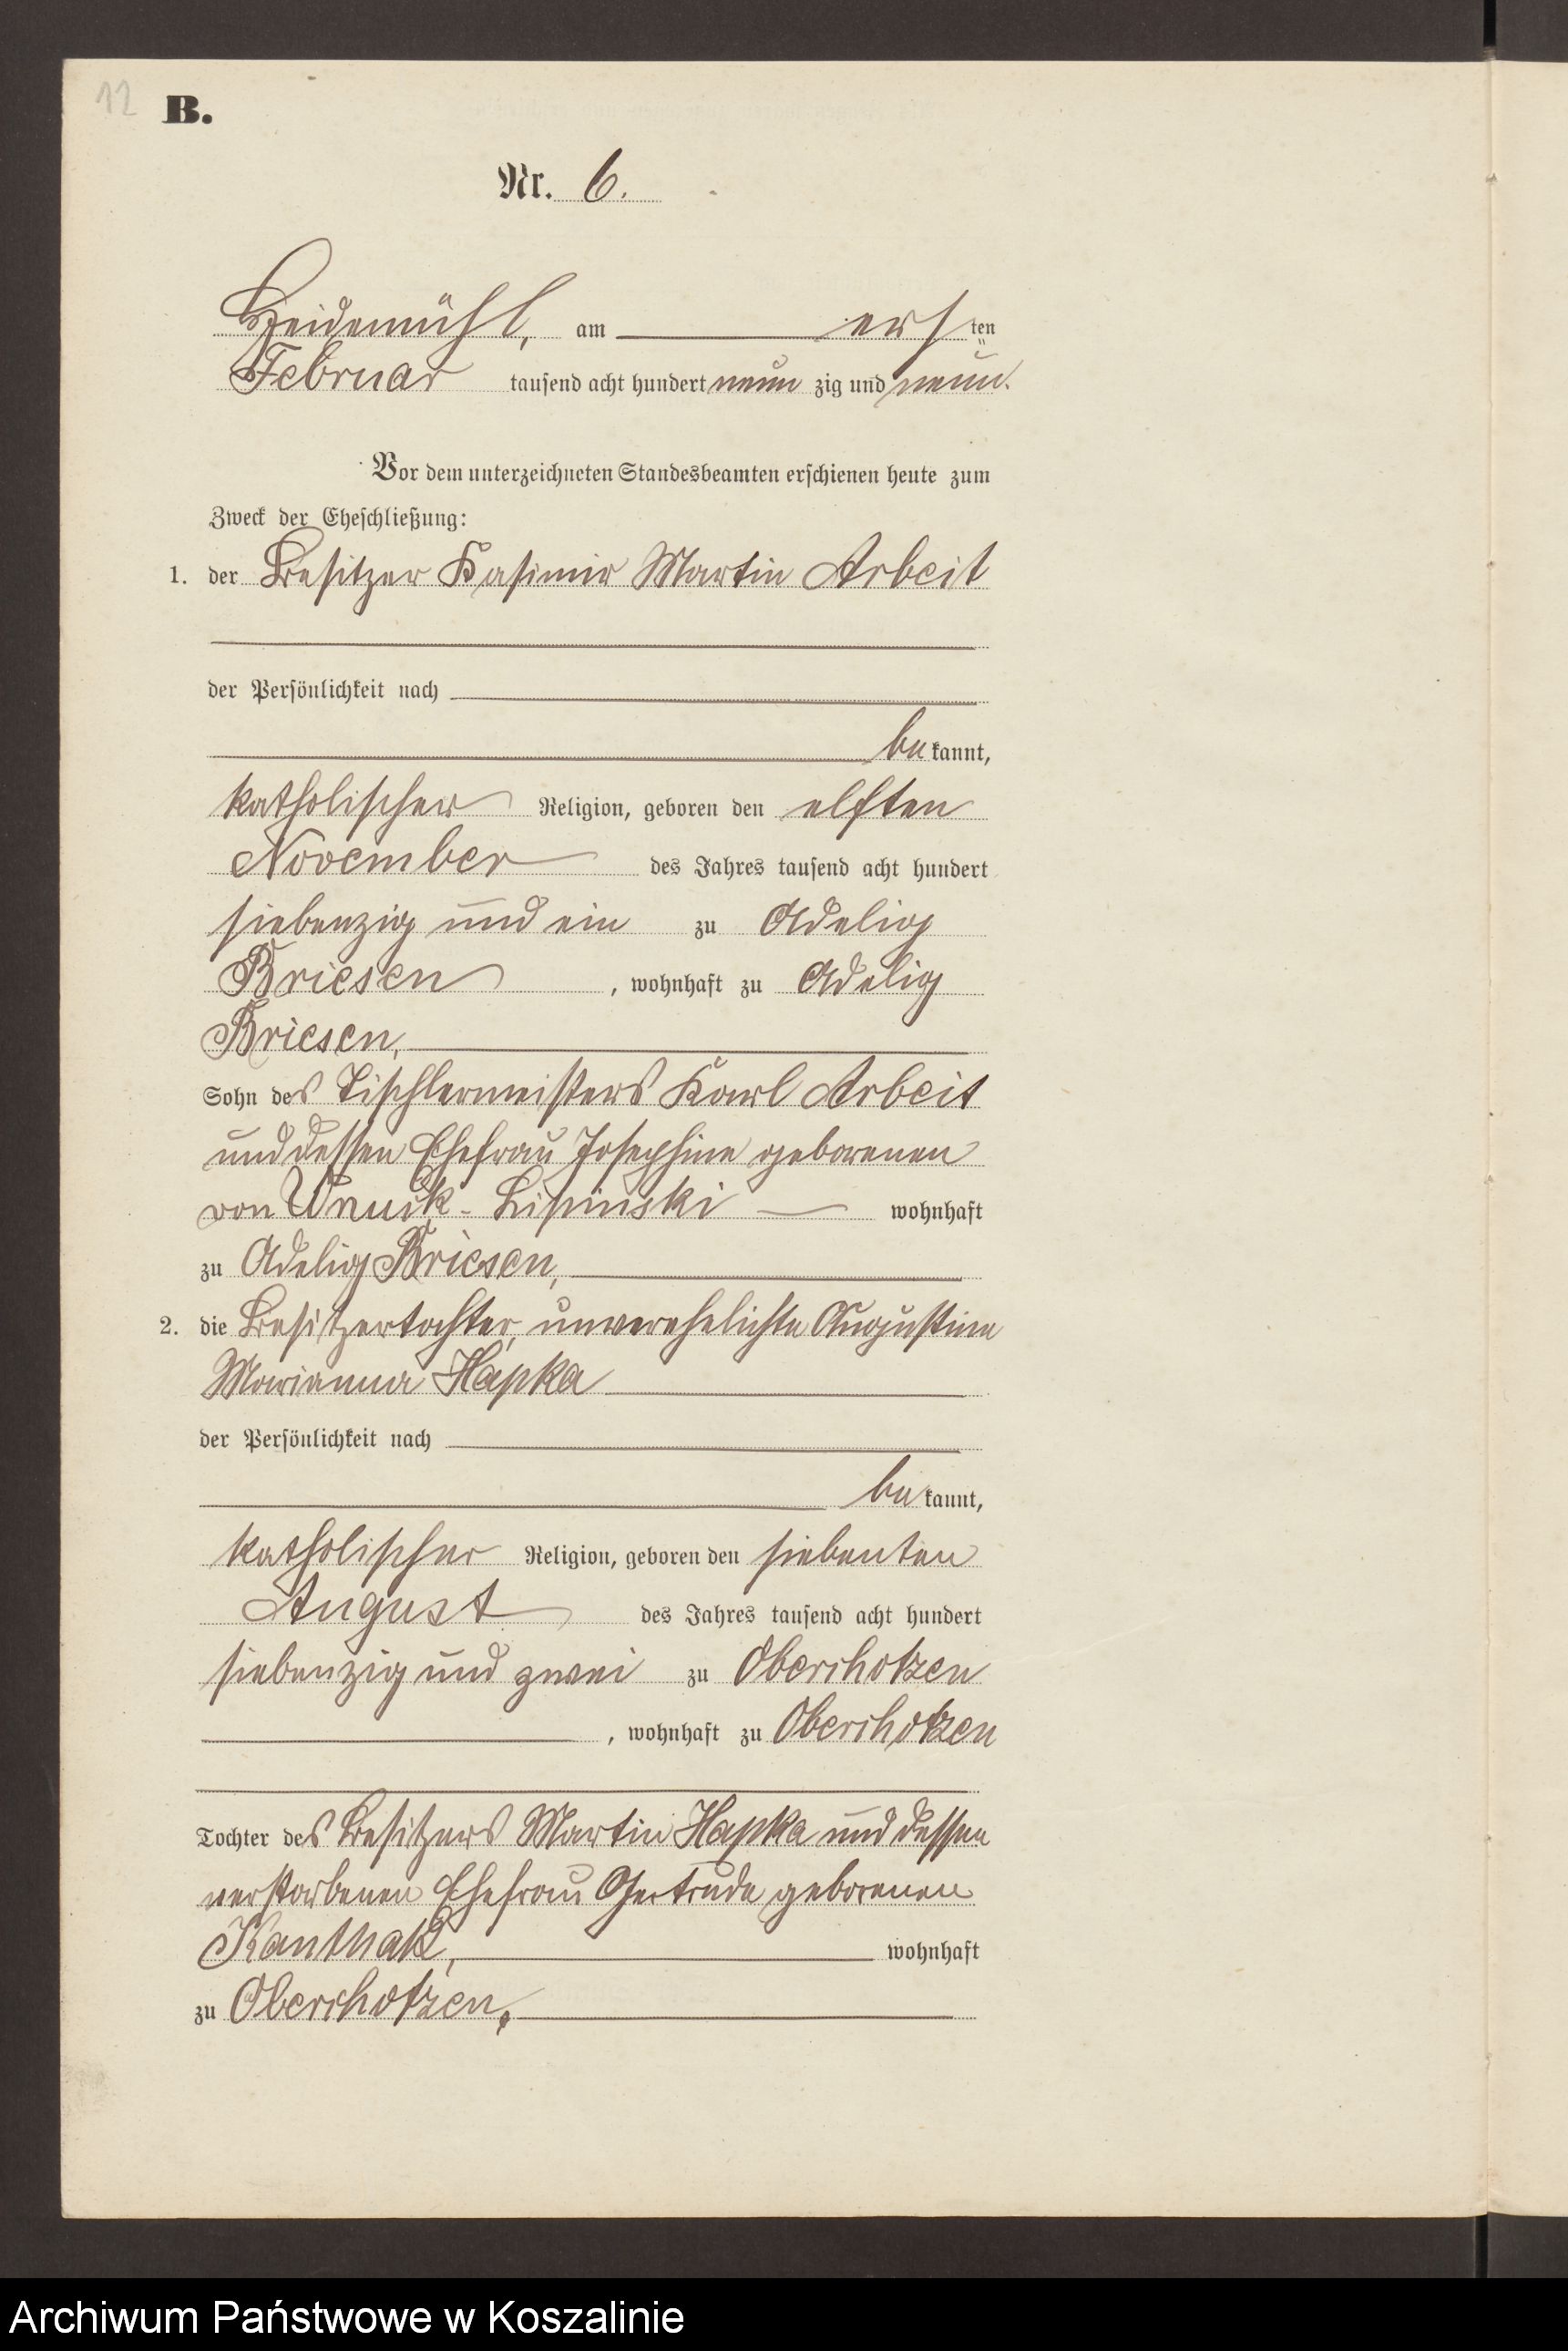 12 B.
Nr. 6.
Heidemühl, am ersten
Februar tausend acht hundert neun zig und neun.
Vor dem unterzeichneten Standesbeamten erschienen heute zum
Zweck der Eheschließung:
1. der Besitzer Kasimir Martin Arbeit
der Persönlichkeit nach
be kannt,
katholischer Religion, geboren den elften
November des Jahres tausend acht hundert
siebenzig und ein zu Adelig
Briesen, wohnhaft zu Adelig
Briesen,
Sohn des Tischlermeisters Karl Arbeit
und dessen Ehefrau Josephine geborenen
von Wnuck-Lipinski wohnhaft
zu Adelig Briesen,
2. die Besitzertochter, unverehelichte Augustine
Marianna Hapka
der Persönlichkeit nach
be kannt,
katholischer Religion, geboren den siebenten
August des Jahres tausend acht hundert
siebenzig und zwei zu Oberchotzen
, wohnhaft zu Oberchotzen
Tochter des Besitzers Martin Hapka und dessen
verstorbenen Ehefrau Gertrude geborenen
Kanthak, wohnhaft
zu Oberchotzen,
Archiwum Państwowe w Koszalinie